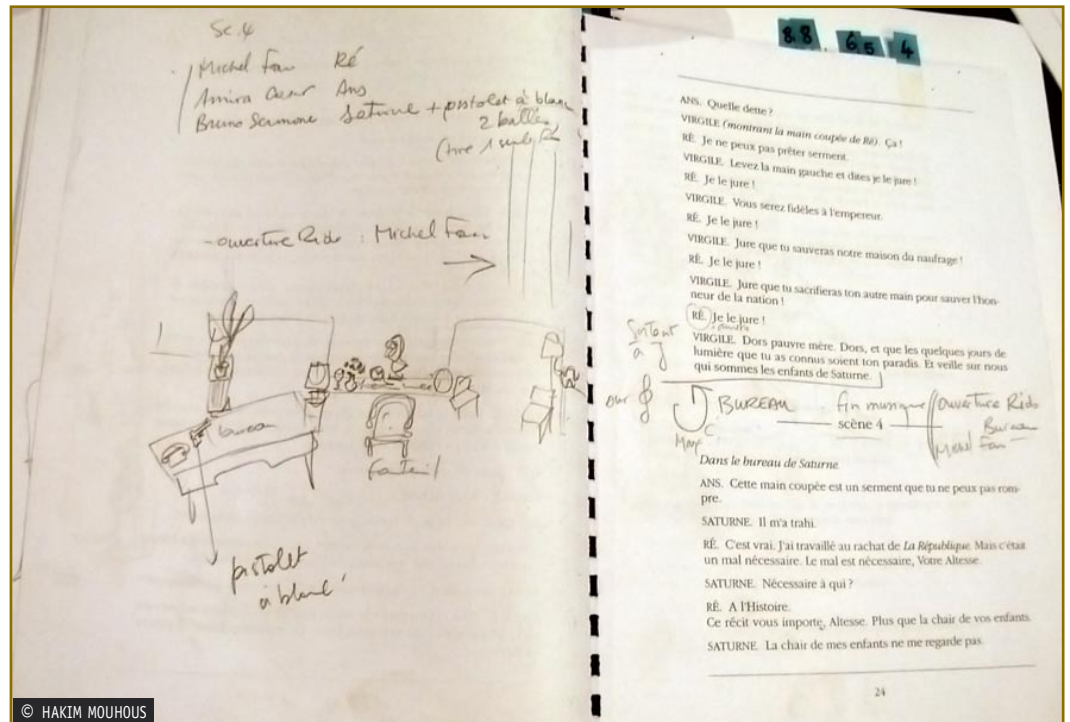 Sc. 4
Michel Fau Ré
Amira Ans
Bruno Saturne + pistolet à blanc
2 balles
(tire 1 seule
- ouverture Rido : Michel Fau
bureau
fauteuil
pistolet
à blanc
8.8 6.5 4
ANS. Quelle dette ?
VIRGILE (montrant la main coupée de Ré). Ça !
RÊ. Je ne peux pas prêter serment.
VIRGILE. Levez la main gauche et dites je le jure !
RÊ. Je le jure !
VIRGILE. Vous serez fidèles à l'empereur.
RÊ. Je le jure !
VIRGILE. Jure que tu sauveras notre maison du naufrage !
RÊ. Je le jure !
VIRGILE. Jure que tu sacrifieras ton autre main pour sauver l'hon-
neur de la nation !
RÊ. Je le jure !
VIRGILE. Dors pauvre mère. Dors, et que les quelques jours de
lumière que tu as connus soient ton paradis. Et veille sur nous
qui sommes les enfants de Saturne.
Sortent
à J
BUREAU
fin musique
ouverture Rido
Bureau
Michel Fau
scène 4
Dans le bureau de Saturne.
ANS. Cette main coupée est un serment que tu ne peux pas rom-
pre.
SATURNE. Il m'a trahi.
RÊ. C'est vrai. J'ai travaillé au rachat de La République. Mais c'était
un mal nécessaire. Le mal est nécessaire, Votre Altesse.
SATURNE. Nécessaire à qui ?
RÊ. A l'Histoire.
Ce récit vous importe, Altesse. Plus que la chair de vos enfants.
SATURNE. La chair de mes enfants ne me regarde pas.
24
© HAKIM MOUHOUS